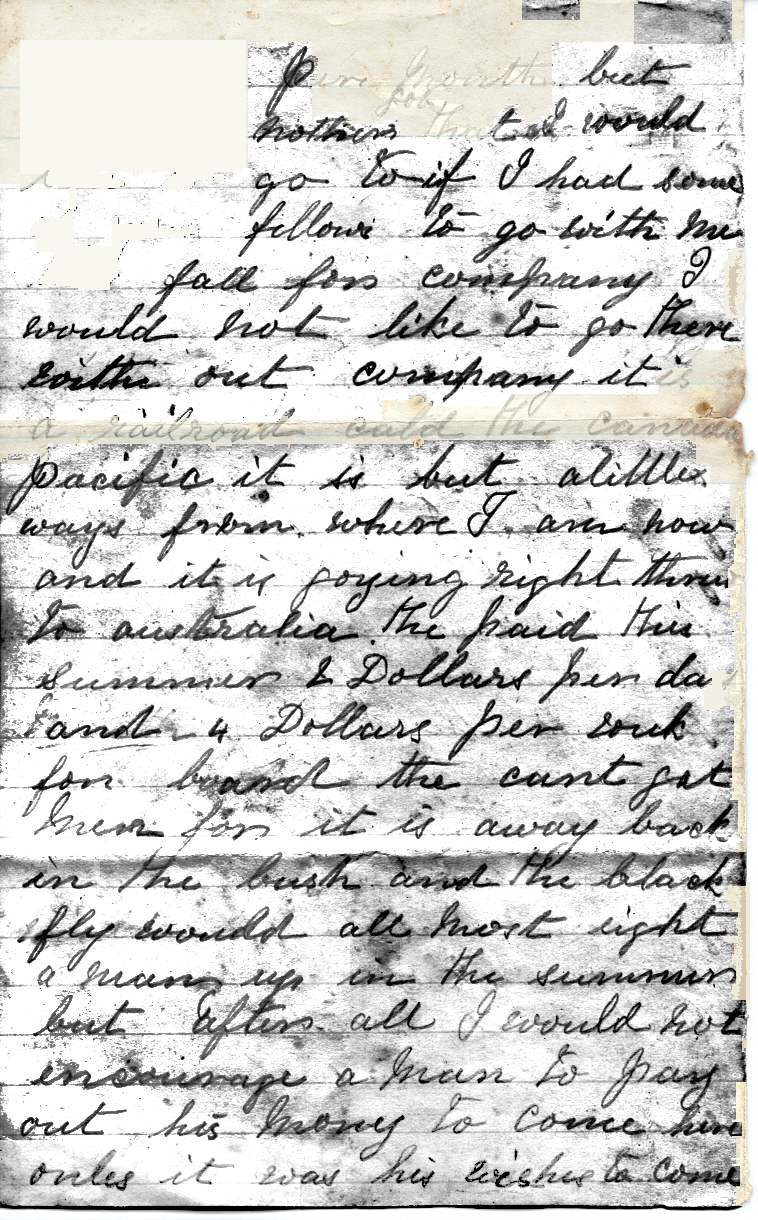 per month but
job
nothers that I would
go to if I had some
fellows to go with me
fall for company I
would not like to go there
with out company it is
a railroad cald the canadian
pacific it is but alittle
ways from where I am now
and it is goying right thru
to australia the paid this
summer 2 Dollars per da
and 4 Dollars per wuk
for board the cant gat
men for it is away back
in the bush and the black
fly would all most eight
a man up in the summer
but after all I would not
encourage a man to pay
out his money to come here
onles it was his wishes to come